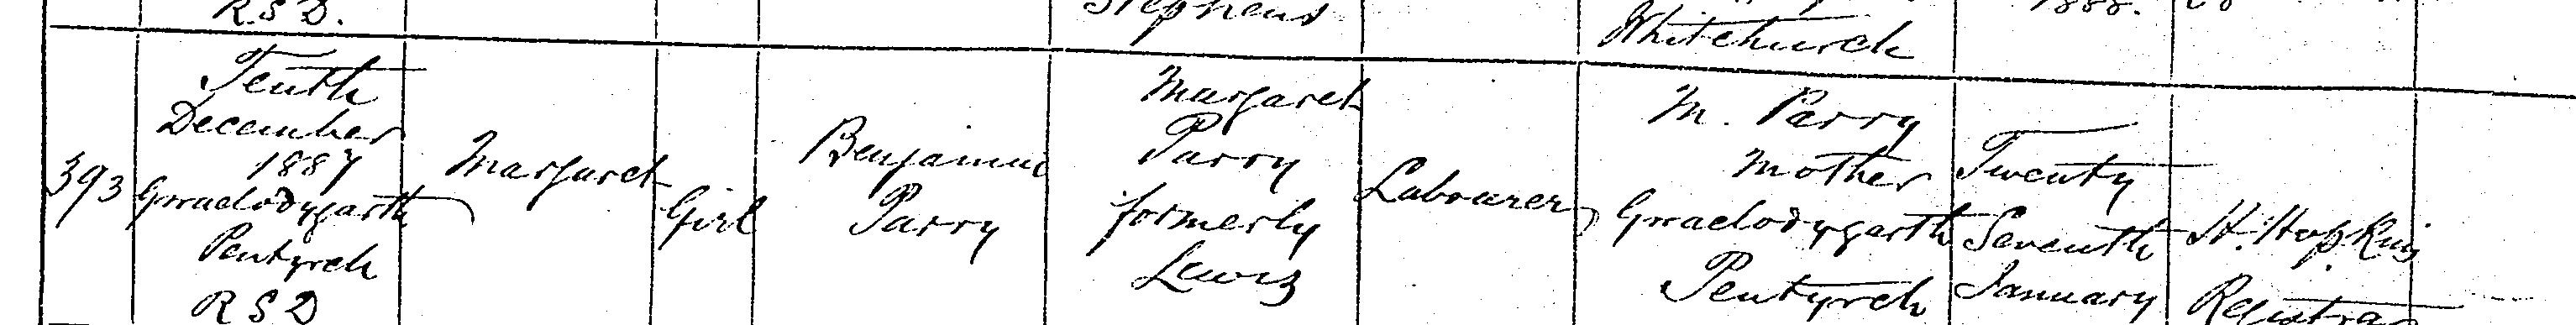 R.S.D.
Stephens
Whitchurch
1888.
393
Tenth
December
1887
Gwaelodygarth
Pentyrch
R S D
Margaret
Girl
Benjamin
Parry
Margaret
Parry
formerly
Lewis
Labourer
M. Parry
Mother
Gwaelodygarth
Pentyrch
Twenty
Seventh
January
H. Hopkins
Registrar